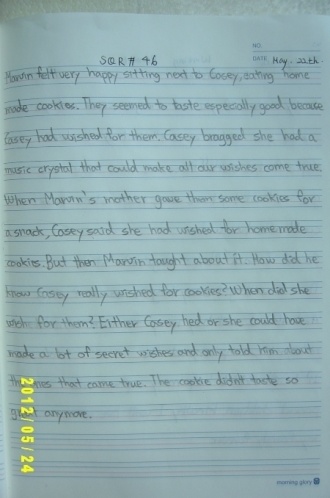 SQR # 46
NO.
DATE May. 22th.
Marvin felt very happy sitting next to Casey, eating home
made cookies. They seemed to taste especially good because
Casey had wished for them. Casey bragged she had a
music crystal that could make all our wishes come true.
When Marvin's mother gave them some cookies for
a snack, Casey said she had wished for homemade
cookies. But then Marvin tought about it. How did he
know Casey really wished for cookies? When did she
wish for them? Either Casey lied or she could have
made a lot of secret wishes and only told him about
the ones that came true. The cookie didn't taste so
great anymore.
2012/05/24
morning glory